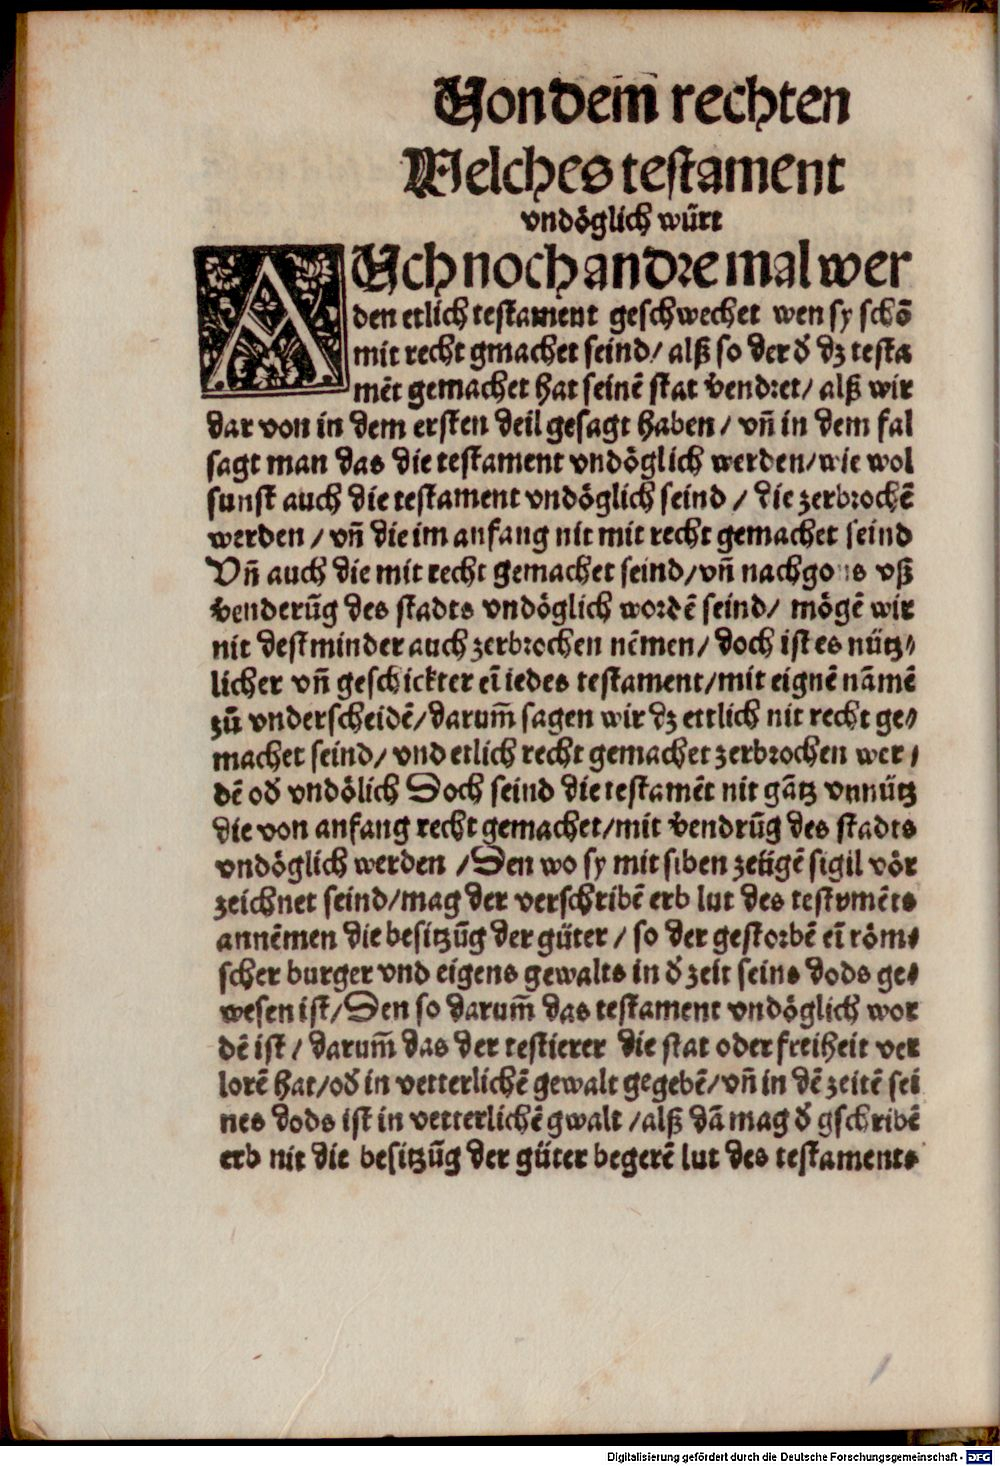 Von dem rechten
Welches testament
vndöglich würt
AUch noch andre mal wer
den etlich testament geschwechet wen sy schō
mit recht gmachet seind/ alß so der d̕ dz testa
mēt gemachet hat seinē stat v̕endret/ alß wir
dar von in dem ersten deil gesagt haben/ vn̄ in dem fal
sagt man das die testament vndöglich werden/wie wol
sunst auch die testament vndöglich seind / die zerbrochē
werden / vn̄ die im anfang nit mit recht gemachet seind
Vn̄ auch die mit recht gemachet seind/vn̄ nachgons vß
v̕enderūg des stadts vndöglich wordē seind/ mögē wir
nit destminder auch zerbrochen nēmen/ doch ist es nütz⸗
licher vn̄ geschickter eī iedes testament/mit eignē nāmē
zů vnderscheidē/darum̄ sagen wir dz ettlich nit recht ge⸗
machet seind/ vnd etlich recht gemachet zerbrochen wer⸗
dē od̕ vndölich Doch seind die testamēt nit gātz vnnütz
die von anfang recht gemachet/mit v̕endrūg des stadts
vndöglich werden /Den wo sy mit siben zeügē sigil vör
zeichnet seind/mag der verschribē erb lut des testamēts
annēmen die besitzūg der güter / so der gestorbē eī röm⸗
scher burger vnd eigens gewalts in d̕ zeit seins dods ge⸗
wesen ist/Den so darum̄ das testament vndöglich wor
dē ist / darum̄ das der testierer die stat oder freiheit ver
lorē hat/od̕ in vetterlichē gewalt gegebē/vn̄ in dē zeitē sei
nes dods ist in vetterlichē gwalt /alß dā mag d̕ gschribē
erb nit die besitzūg der güter begerē lut des testaments
Digitalisierung gefördert durch die Deutsche Forschungsgemeinschaft - DFG